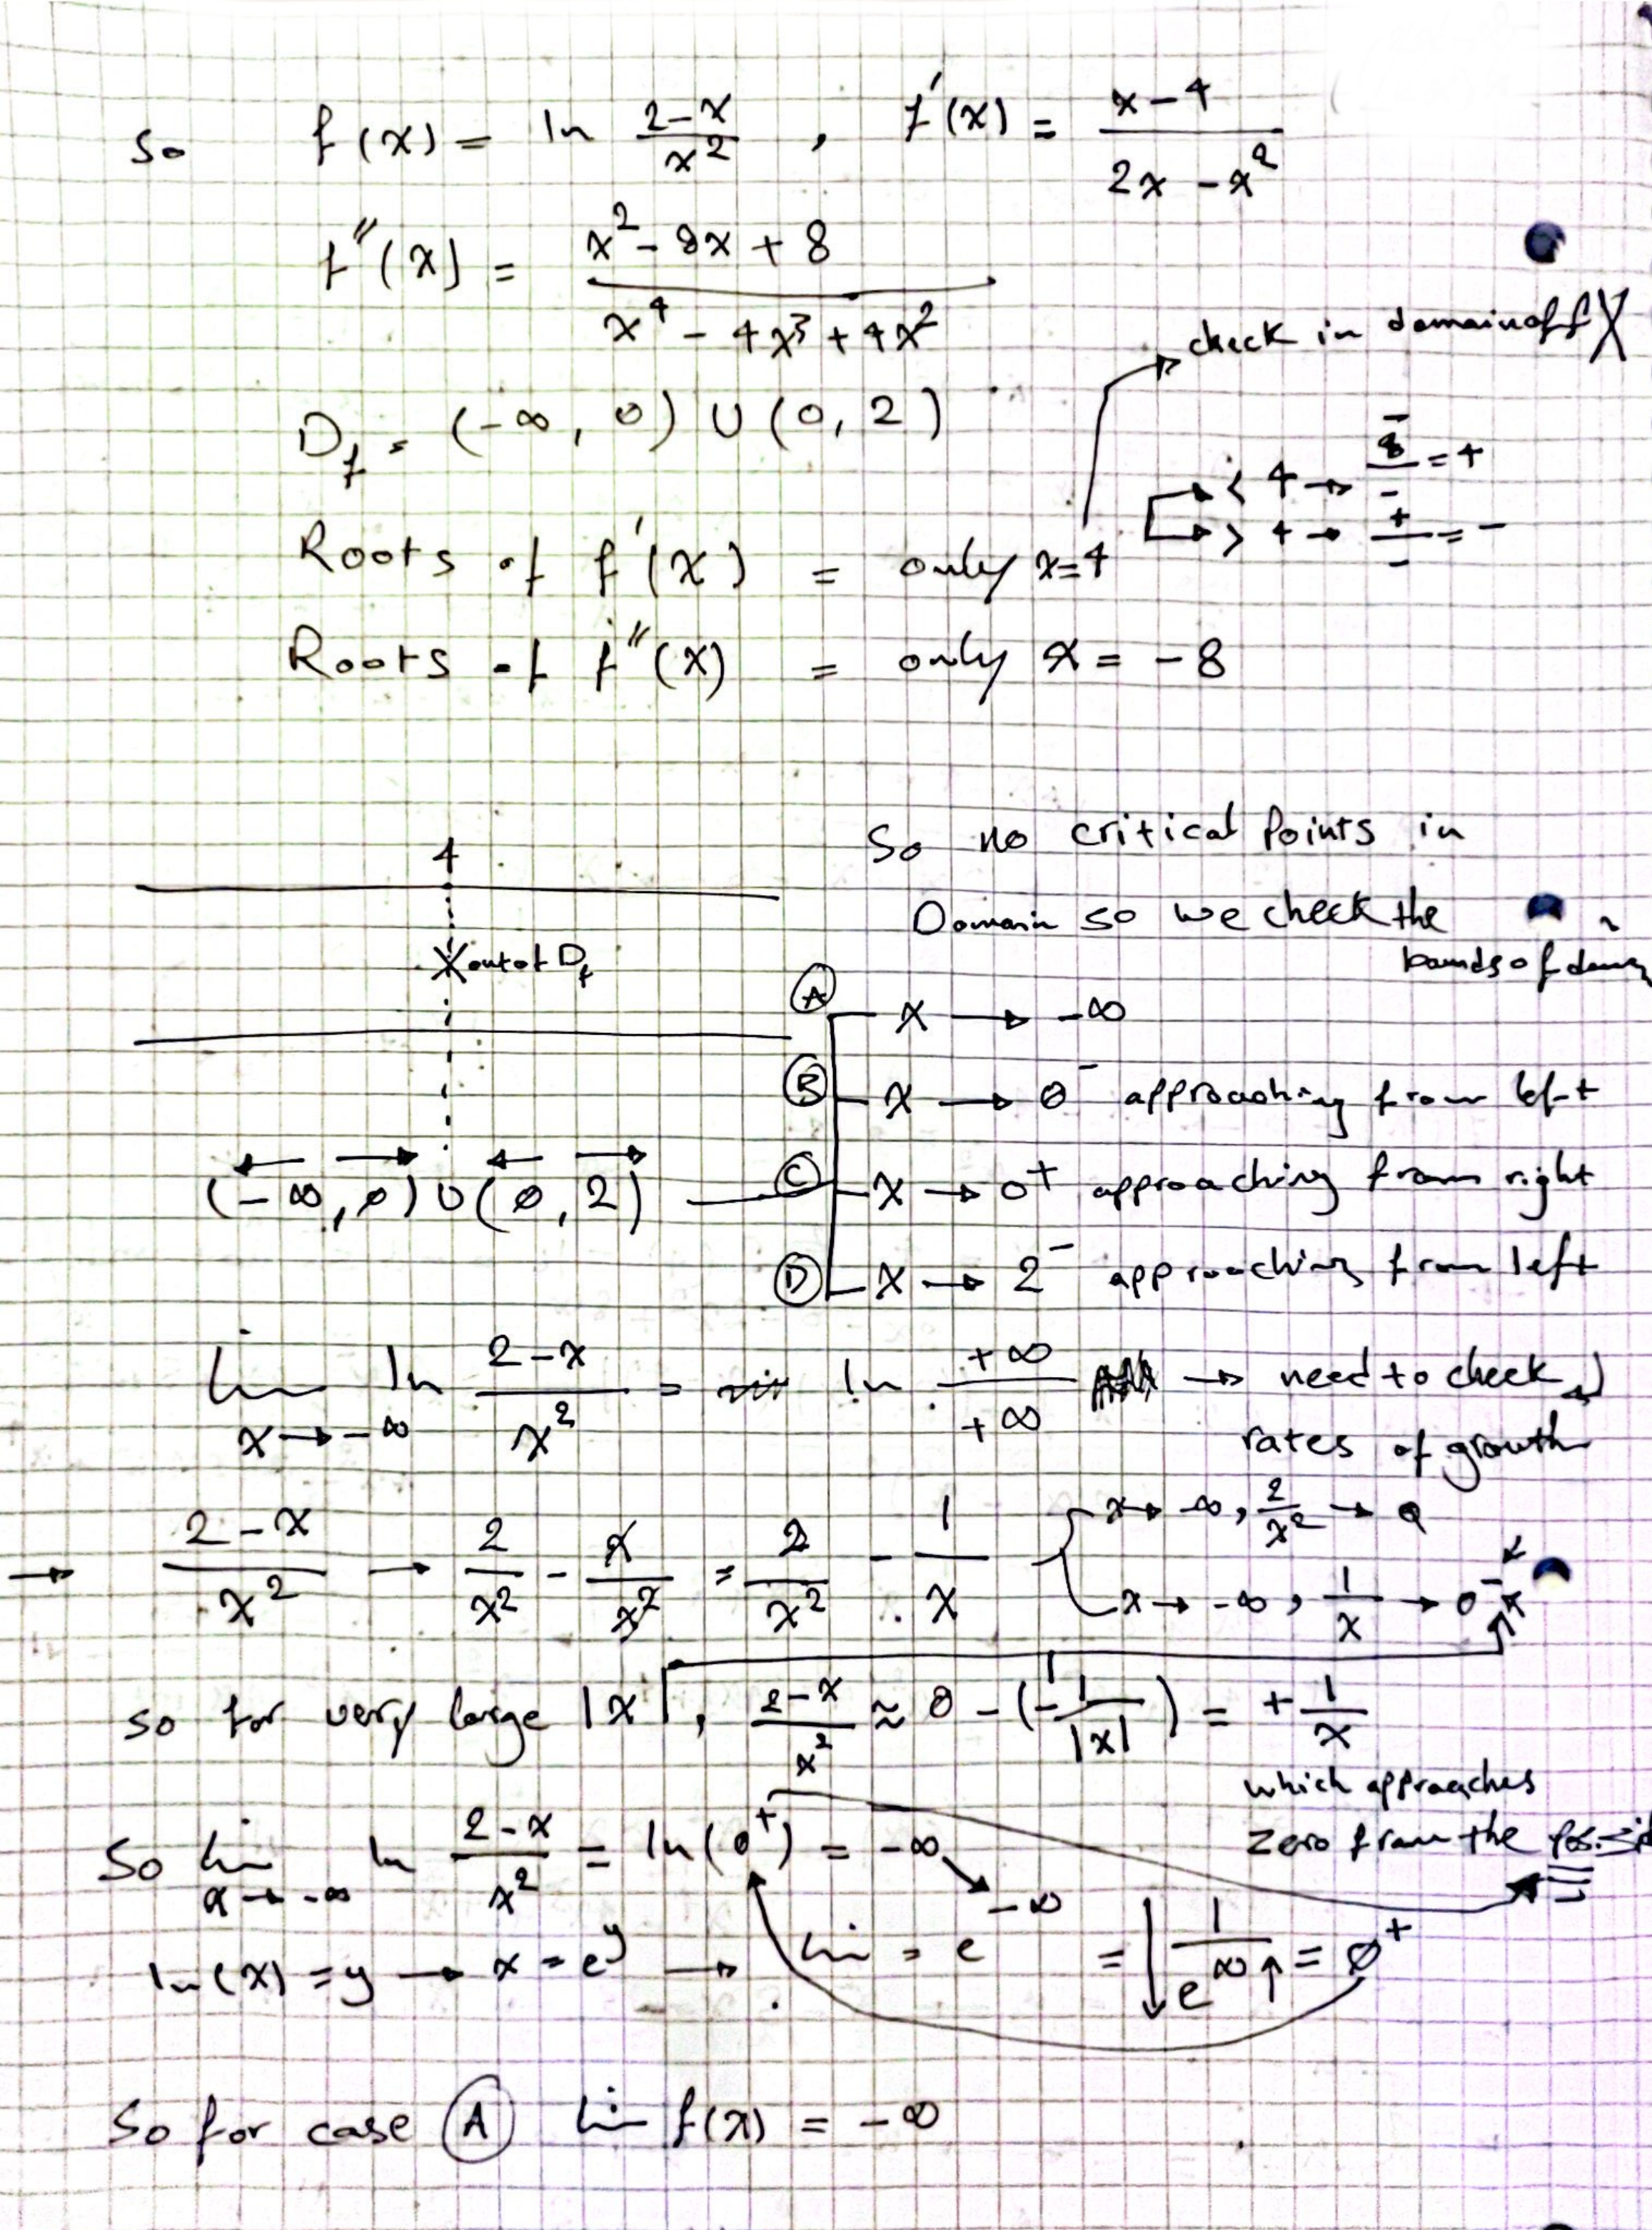 so f(x) = ln (2-x)/x², f'(x) = (x-4)/(2x-x²)
f''(x) = (x²-8x+8)/(x⁴-4x³+4x²)
check in domain of f X
D_f = (-∞, 0) ∪ (0, 2)
< 4 → -/- = +
> 4 → +/- = -
Roots of f'(x) = only x=4
Roots of f''(x) = only x = -8
So no critical points in
4
Domain so we check the
X out of D_f
A x → -∞
B x → 0⁻ approaching from left
(-∞, 0) ∪ (0, 2) C x → 0⁺ approaching from right
D x → 2⁻ approaching from left
lim x→-∞ ln (2-x)/x² = ln +∞/+∞ → need to check
rates of growth
→ (2-x)/x² → 2/x² - x/x² = 2/x² - 1/x
x → -∞, 2/x² → 0
x → -∞, 1/x → 0⁻
so for very large |x|, (2-x)/x² ≈ 0 - (-1/|x|) = + 1/x
which approaches
zero from the
So lim x→-∞ ln (2-x)/x² = ln(0⁺) = -∞
ln(x) = y → x = e^y → lim = e^-∞ = 1/e^∞ = 0⁺
So for case A lim f(x) = -∞